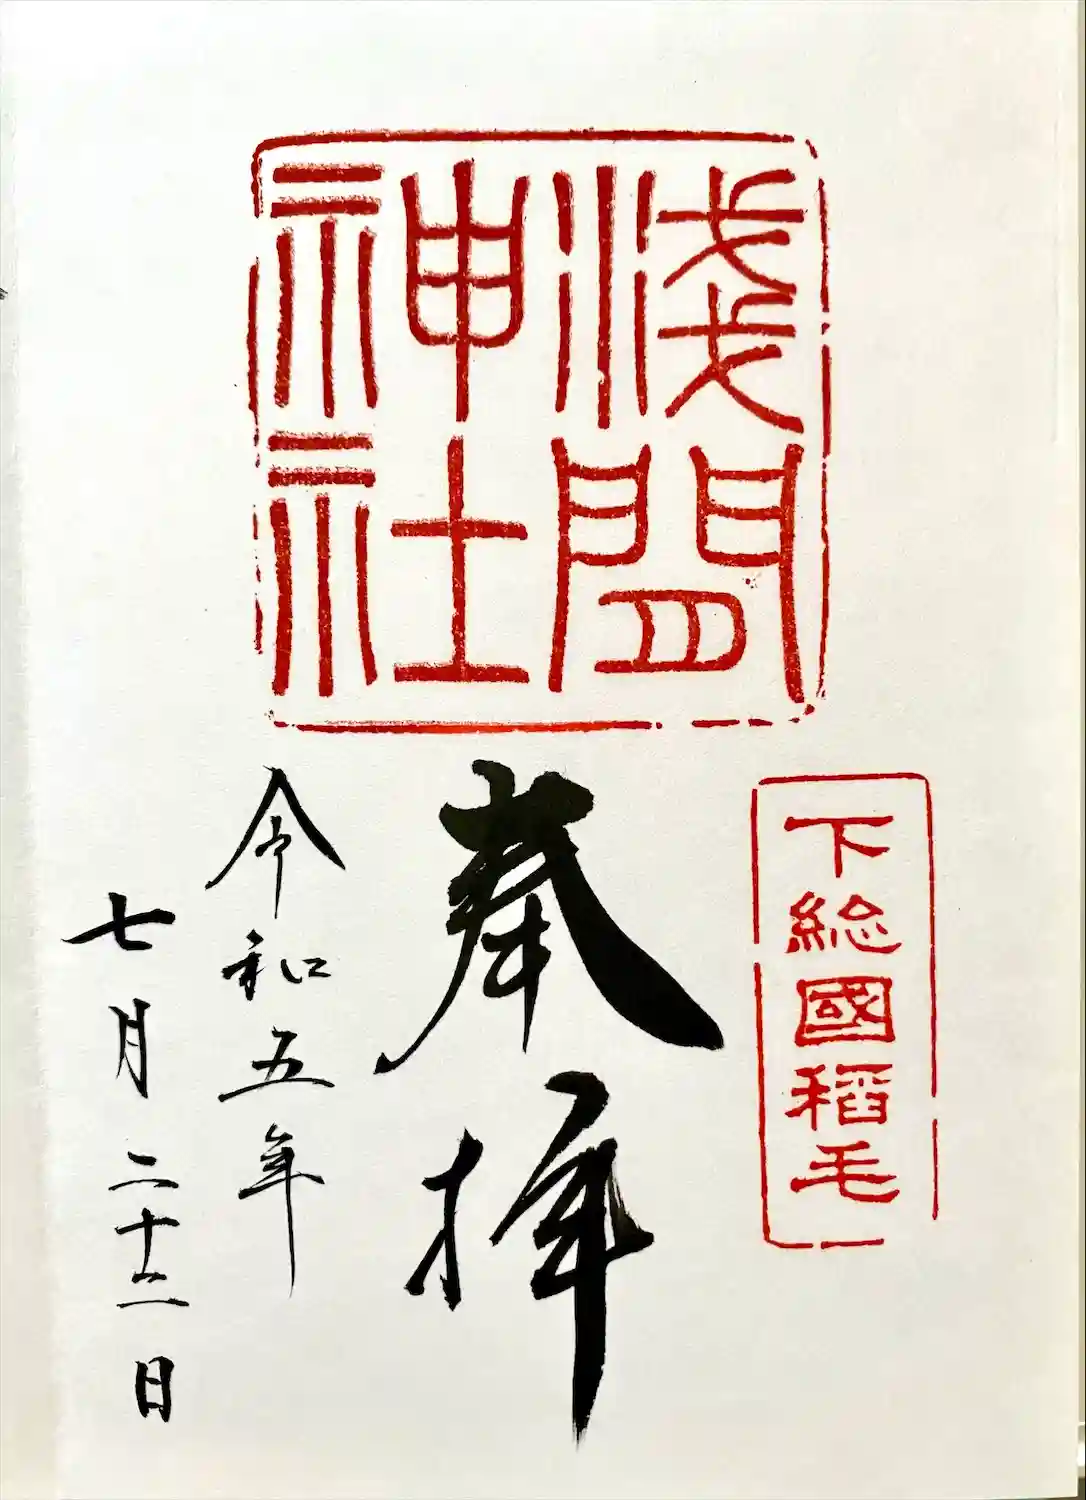 淺間
神社
下総國稻毛
奉拝
令和五年
七月二十二日